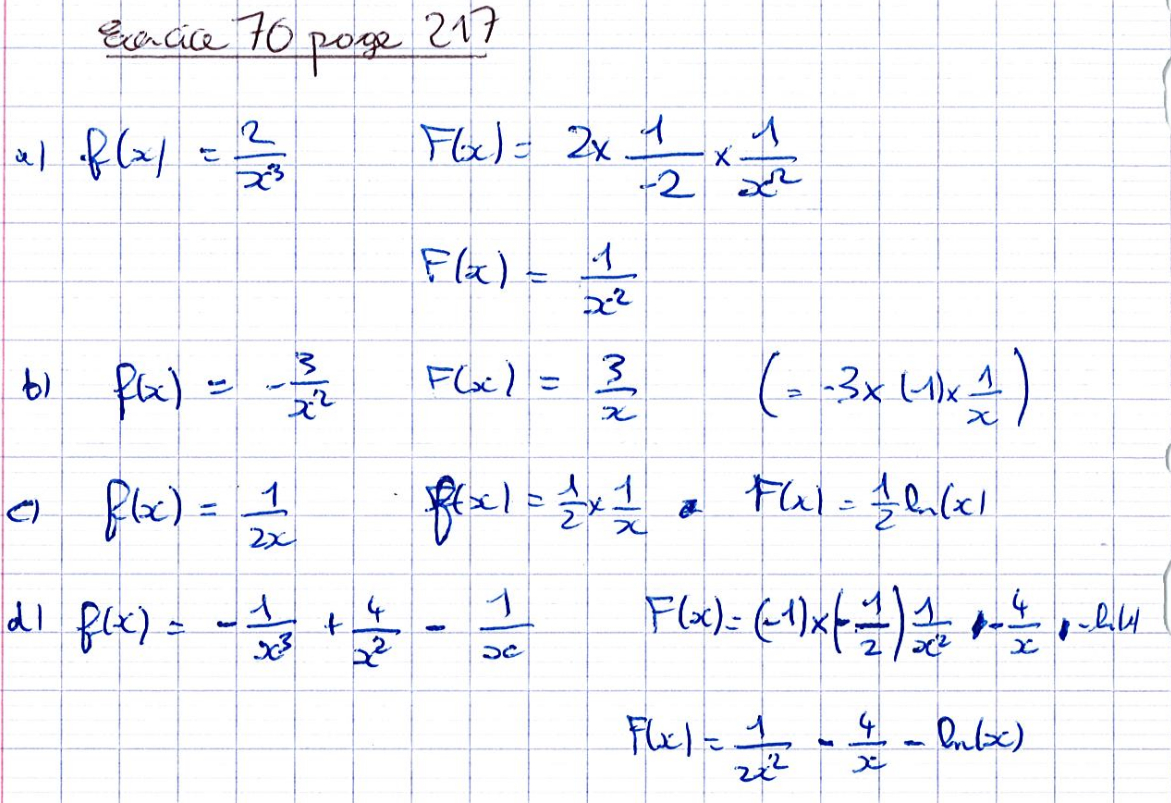 Exercice 70 page 217
a) f(x) = 2/x³ F(x) = 2 × 1/-2 × 1/x²
F(x) = 1/x²
b) f(x) = -3/x² F(x) = 3/x (= -3 × (-1) × 1/x)
c) f(x) = 1/2x f(x) = 1/2 × 1/x F(x) = 1/2 ln(x)
d) f(x) = -1/x³ + 4/x² - 1/x F(x) = (-1) × (-1/2) 1/x² - 4/x - ln(x)
F(x) = 1/2x² - 4/x - ln(x)